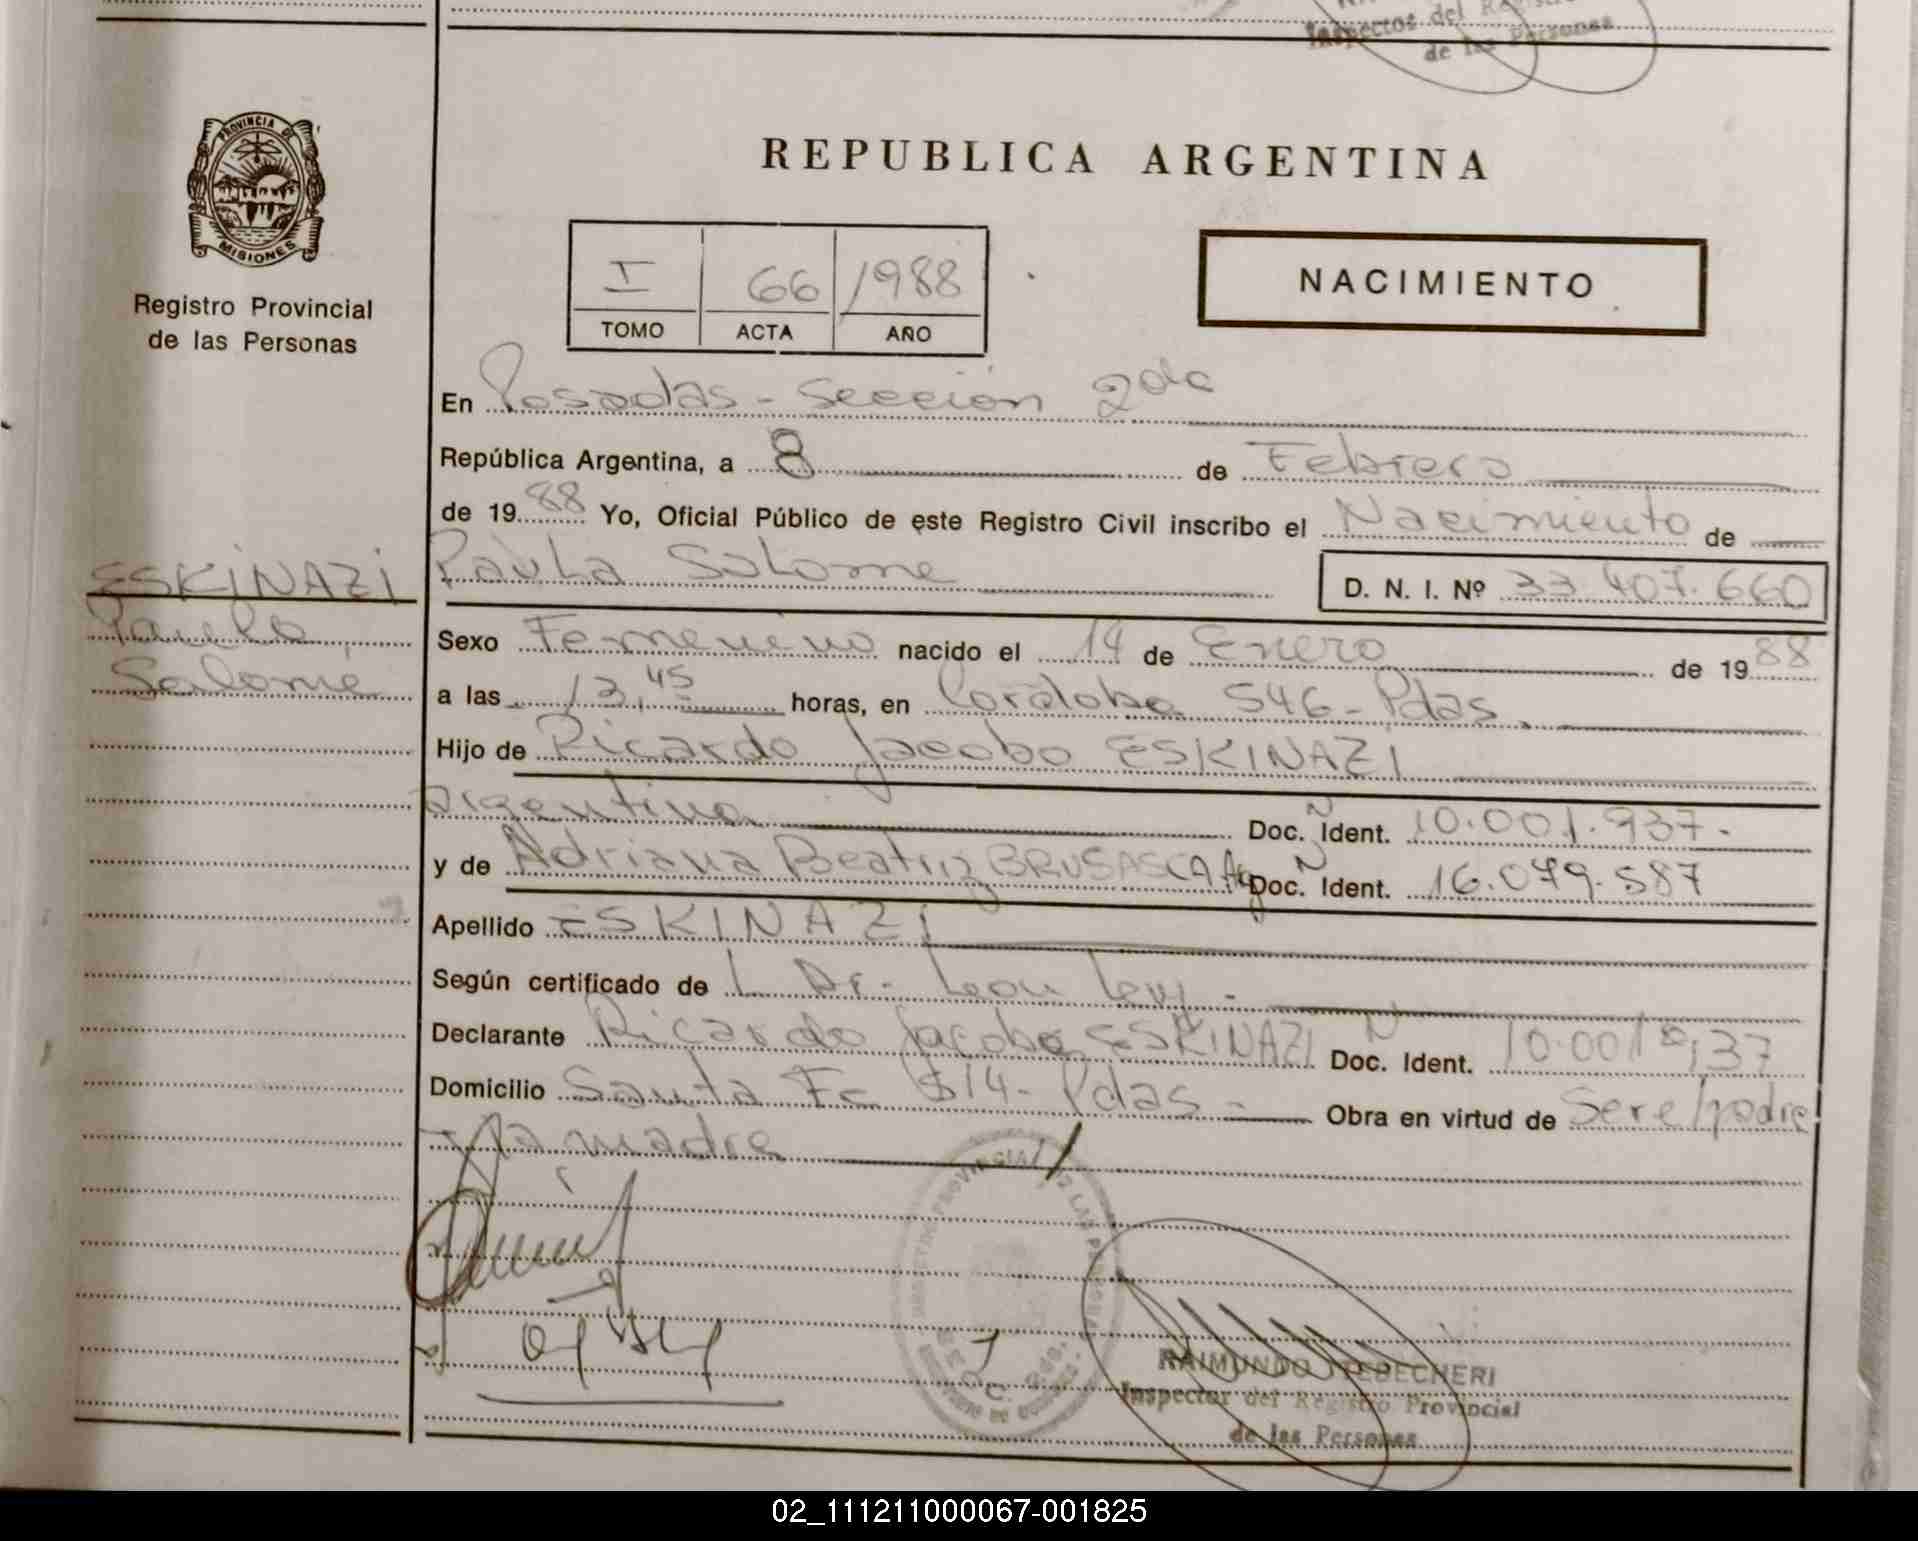 Inspector del Registro
de las Personas
PROVINCIA DE
MISIONES
Registro Provincial
de las Personas
REPUBLICA ARGENTINA
I 66 1988
TOMO ACTA AÑO
NACIMIENTO
En Posadas - Sección 2da
República Argentina, a 8 de Febrero
de 1988 Yo, Oficial Público de este Registro Civil inscribo el Nacimiento de
ESKINAZI
Paula
Salomé
Paula Salome D. N. I. Nº 33.407.660
Sexo Femenino nacido el 14 de Enero de 1988
a las 13,45 horas, en Cordoba 546 - Pdas.
Hijo de Ricardo Jacobo ESKINAZI
argentino Doc. Ñ Ident. 10.001.937.
y de Adriana Beatriz BRUSASCA Ag Doc. Ñ Ident. 16.079.587
Apellido ESKINAZI
Según certificado de L Dr. Leon Levy -
Declarante Ricardo Jacobo ESKINAZI Ñ Doc. Ident. 10.001937
Domicilio Santa Fe 514 - Pdas - Obra en virtud de Ser el padre
y la madre
RAIMUNDO
Inspector del Registro Provincial
de las Personas
02_111211000067-001825